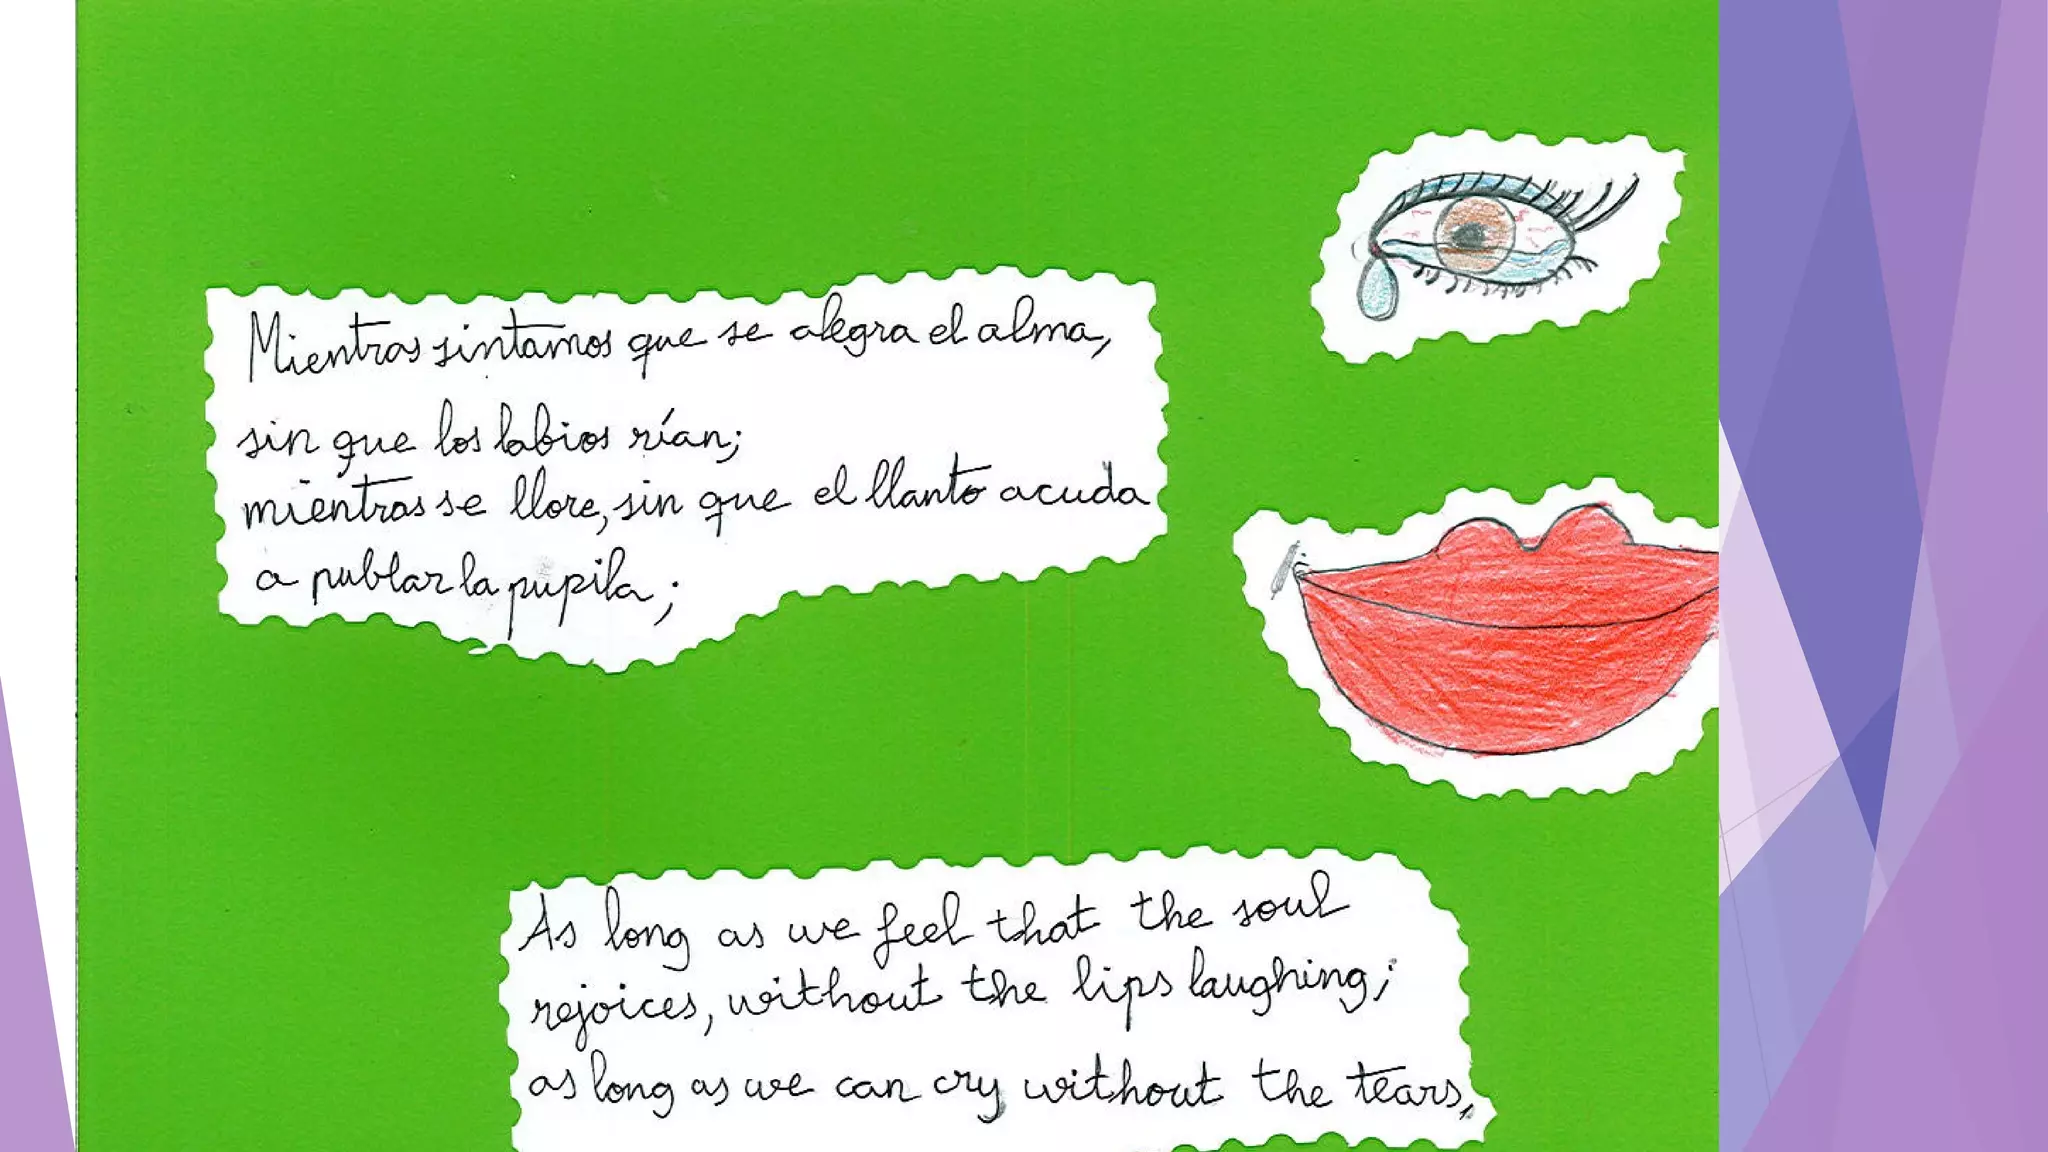 Mientras sintamos que se alegra el alma,
sin que los labios rían;
mientras se llore, sin que el llanto acuda
a nublar la pupila;
As long as we feel that the soul
rejoices, without the lips laughing;
as long as we can cry without the tears,